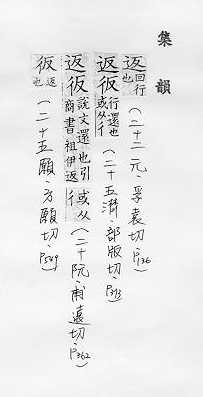 集韻
返回行也(二十二元·孚袁切·P136)
返仮行還也或从彳(二十五潸·部版切·P373)
返仮說文還也引商書祖伊返或从彳(二十阮·甫遠切·P362)
仮返也(二十五願·方願切·P549)